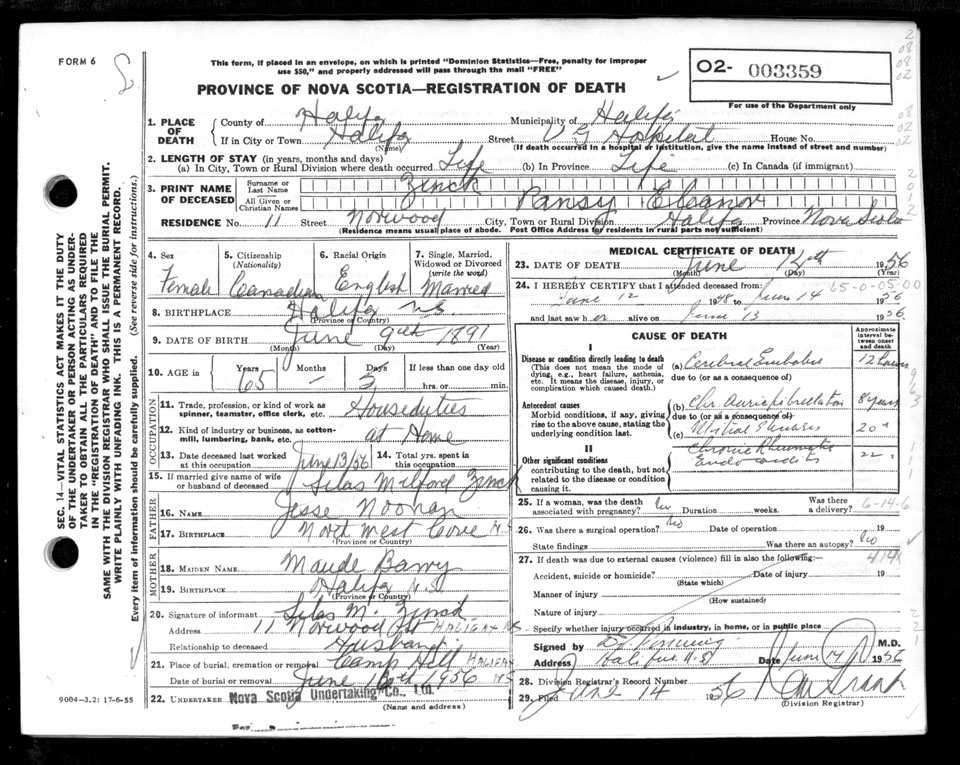 FORM 6
This form, if placed in an envelope, on which is printed "Dominion Statistics—Free, penalty for improper
use $50," and properly addressed will pass through the mail "FREE"
PROVINCE OF NOVA SCOTIA—REGISTRATION OF DEATH
O2- 003359
For use of the Department only
1. PLACE OF DEATH
County of Halifax Municipality of Halifax
If in City or Town Halifax Street V G Hospital House No.
(Name) (If death occurred in a hospital or institution, give the name instead of street and number)
2. LENGTH OF STAY (in years, months and days)
(a) In City, Town or Rural Division where death occurred Life (b) In Province Life (c) In Canada (if immigrant)
3. PRINT NAME OF DECEASED
Surname or Last Name Zinck
All Given or Christian Names Pansy Eleanor
RESIDENCE No. 11 Street Norwood City, Town or Rural Division Halifax Province Nova Scotia
(Residence means usual place of abode. Post Office Address for residents in rural parts not sufficient)
SEC. 14—VITAL STATISTICS ACT MAKES IT THE DUTY
OF THE UNDERTAKER OR PERSON ACTING AS UNDER-
TAKER TO OBTAIN ALL THE PARTICULARS REQUIRED
IN THE "REGISTRATION OF DEATH" AND TO FILE THE
SAME WITH THE DIVISION REGISTRAR WHO SHALL ISSUE THE BURIAL PERMIT.
WRITE PLAINLY WITH UNFADING INK. THIS IS A PERMANENT RECORD.
Every item of information should be carefully supplied. (See reverse side for instructions.)
4. Sex Female
5. Citizenship (Nationality) Canadian
6. Racial Origin English
7. Single, Married, Widowed or Divorced (write the word) Married
8. BIRTHPLACE Halifax N.S.
(Province or Country)
9. DATE OF BIRTH June 9th 1891
(Month) (Day) (Year)
10. AGE in Years 65 Months – Days 5 If less than one day old
hrs. or min.
OCCUPATION
11. Trade, profession, or kind of work as spinner, teamster, office clerk, etc. Houseduties
12. Kind of industry or business, as cotton-mill, lumbering, bank, etc. at Home
13. Date deceased last worked at this occupation June 13/56 14. Total yrs. spent in this occupation
15. If married give name of wife or husband of deceased Silas Milford Zinck
FATHER
16. NAME Jesse Noonan
17. BIRTHPLACE North West Cove N.S
(Province or Country)
MOTHER
18. MAIDEN NAME Maude Barry
19. BIRTHPLACE Halifax N.S.
(Province or Country)
20. Signature of informant Silas M. Zinck
Address 11 Norwood St HALIFAX NS
Relationship to deceased Husband
21. Place of burial, cremation or removal Camp Hill HALIFAX
Date of burial or removal June 1956 NS
22. UNDERTAKER Nova Scotia Undertaking Co., Ltd.
(Name and address)
9004-3,2: 17-6-55
MEDICAL CERTIFICATE OF DEATH
23. DATE OF DEATH June 1956
(Month) (Day) (Year)
24. I HEREBY CERTIFY that I attended deceased from: 65-0-05.00
June 12 1948 to June 14 1956
and last saw her alive on June 13 1956.
CAUSE OF DEATH
Approximate interval between onset and death
I
Disease or condition directly leading to death
(This does not mean the mode of dying, e.g., heart failure, asthenia, etc. It means the disease, injury, or complication which caused death.)
(a) Cerebral Embolus 12 hours
due to (or as a consequence of)
Antecedent causes
Morbid conditions, if any, giving rise to the above cause, stating the underlying condition last.
(b) Chr. Auric. fibrillation 8 years
due to (or as a consequence of)
(c) Mitral Stenosis 20 "
II
Other significant conditions
contributing to the death, but not related to the disease or condition causing it
Chronic Rheumatic Endocarditis 22 "
25. If a woman, was the death associated with pregnancy? no Duration weeks. Was there a delivery? 6-14-6
26. Was there a surgical operation? No Date of operation 19
State findings Was there an autopsy? No
27. If death was due to external causes (violence) fill in also the following:— 414X
Accident, suicide or homicide? Date of injury 19
(State which)
Manner of injury
(How sustained)
Nature of injury
Specify whether injury occurred in industry, in home, or in public place
Signed by M.D.
Address Halifax N.S. Date June 14 1956
28. Division Registrar's Record Number
29. Filed June 14 1956
(Division Registrar)